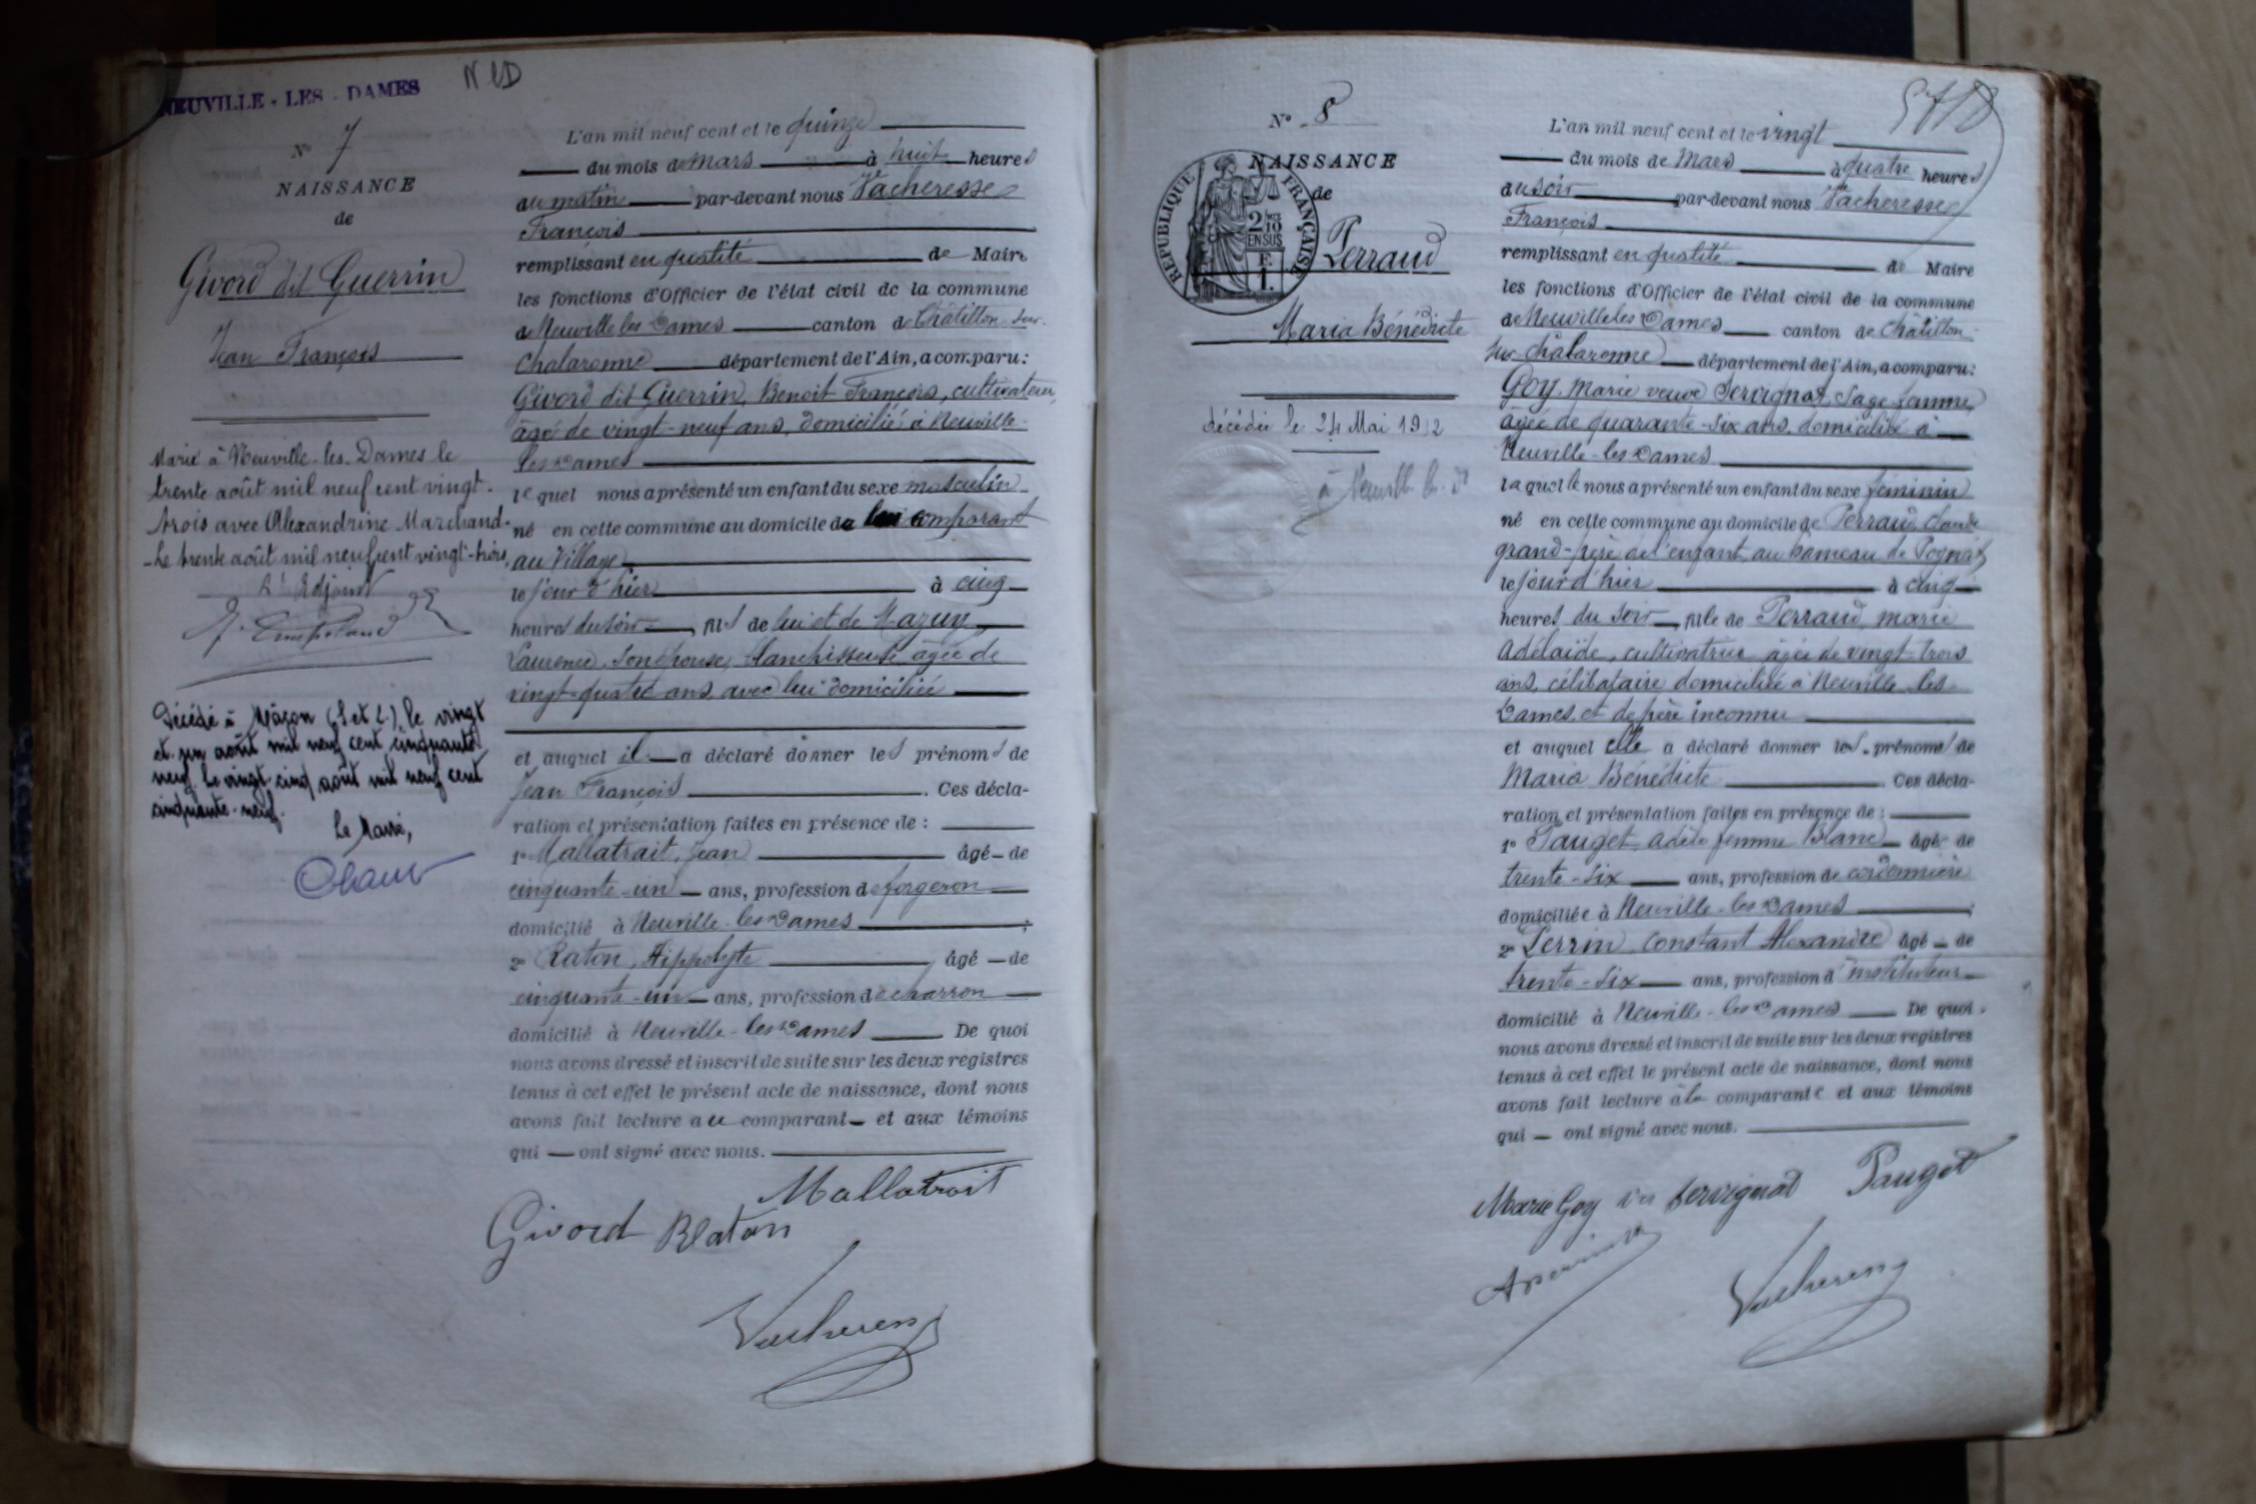 NEUVILLE - LES - DAMES
N° 7
NAISSANCE
de
Givord dit Guerrin
Jean François
Marié à Neuville-les-Dames le
trente août mil neuf cent vingt-
trois avec Alexandrine Marchand.
Le trente août mil neuf cent vingt-trois
L'Adjoint
Décédé à Mâcon (S et L) le vingt
et un août mil neuf cent cinquante
neuf. Le vingt-cinq août mil neuf cent
cinquante-neuf.
Le Maire,
L'an mil neuf cent et le quinze
du mois de mars à huit heures
du matin par-devant nous Vacheresse
François
remplissant en qualité de Maire
les fonctions d'Officier de l'état civil de la commune
de Neuville les Dames canton de Châtillon-sur-
Chalaronne département de l'Ain, a comparu:
Givord dit Guerrin, Benoit François, cultivateur,
âgé de vingt-neuf ans, domicilié à Neuville-
les-Dames
lequel nous a présenté un enfant du sexe masculin
né en cette commune au domicile du comparant
au Village
le jour d'hier à cinq
heures du soir, fils de lui et de Mazuy
Laurence, son épouse, blanchisseuse âgée de
vingt-quatre ans, avec lui domiciliée
et auquel il a déclaré donner les prénoms de
Jean François. Ces décla-
ration et présentation faites en présence de :
1° Mallatrait, Jean âgé de
cinquante-un ans, profession de forgeron
domicilié à Neuville-les-Dames;
2° Raton, Hippolyte, âgé de
cinquante-un ans, profession de charron
domicilié à Neuville-les-Dames De quoi
nous avons dressé et inscrit de suite sur les deux registres
tenus à cet effet le présent acte de naissance, dont nous
avons fait lecture au comparant et aux témoins
qui ont signé avec nous.
Mallatrait
Givord Raton
Vacheresse
N° 8
NAISSANCE
de
RÉPUBLIQUE FRANÇAISE
2/10
EN SUS
F.
1.
Perraud
Maria Bénédicte
décédée le 24 Mai 1912
à Neuville-les-D
L'an mil neuf cent et le vingt
du mois de Mars à quatre heures
du soir par-devant nous Vacheresse
François
remplissant en qualité de Maire
les fonctions d'Officier de l'état civil de la commune
de Neuville les Dames canton de Châtillon-
sur-Chalaronne département de l'Ain, a comparu:
Goy Marie veuve Servignat, Sage femme,
âgée de quarante-six ans, domiciliée à
Neuville-les-Dames
laquelle nous a présenté un enfant du sexe féminin
né en cette commune au domicile de Perraud Claude
grand-père de l'enfant, au hameau de
le jour d'hier à cinq
heures du soir, fille de Perraud, Marie
Adélaïde, cultivatrice âgée de vingt-trois
ans, célibataire domiciliée à Neuville-les-
Dames et de père inconnu
et auquel elle a déclaré donner les prénoms de
Maria Bénédicte. Ces décla-
ration et présentation faites en présence de :
1° Pauget, Adèle femme Blanc âgée de
trente-six ans, profession de cordonnière
domiciliée à Neuville-les-Dames;
2° Perrin Constant Alexandre âgé de
trente-six ans, profession d'instituteur
domicilié à Neuville-les-Dames De quoi
nous avons dressé et inscrit de suite sur les deux registres
tenus à cet effet le présent acte de naissance, dont nous
avons fait lecture à la comparante et aux témoins
qui ont signé avec nous.
Marie Goy Servignat Pauget
Vacheresse